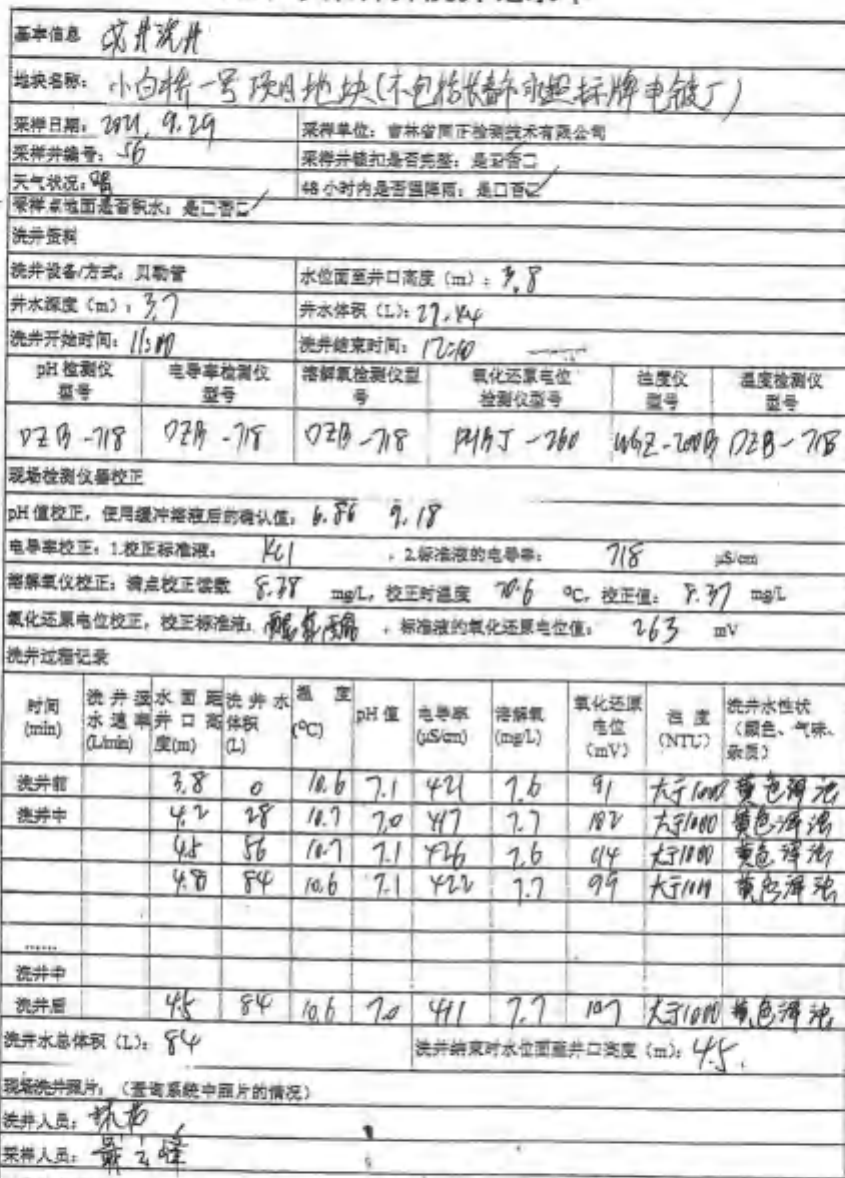 基本信息 成井洗井
地块名称: 小白桥一号项目地块(不包括长春市永超标牌电镀厂)
采样日期: 2021.9.29 采样单位: 吉林省同正检测技术有限公司
采样井编号: S6 采样井锁扣是否完整: 是☑否□
天气状况: 晴 48小时内是否强降雨: 是□否☑
采样点地面是否积水: 是□否☑
洗井资料
洗井设备/方式: 贝勒管 水位面至井口高度(m): 3.8
井水深度(m): 3.7 井水体积(L):
洗井开始时间: 11:00 洗井结束时间:
pH检测仪型号 电导率检测仪型号 溶解氧检测仪型号 氧化还原电位检测仪型号 浊度仪型号 温度检测仪型号
DZB-718 DZB-718 DZB-718 PHBJ-260 WGZ-200B DZB-718
现场检测仪器校正
pH值校正,使用缓冲溶液后的确认值: 6.86 9.18
电导率校正: 1.校正标准液: KCl ,2.标准液的电导率: 718 μS/cm
溶解氧仪校正: 满点校正读数 8.38 mg/L, 校正时温度 °C, 校正值: 8.37 mg/L
氧化还原电位校正, 校正标准液: ,标准液的氧化还原电位值: 263 mV
洗井过程记录
时间(min) 洗井汲水速率(L/min) 水面距井口高度(m) 洗井水体积(L) 温度(°C) pH值 电导率(μS/cm) 溶解氧(mg/L) 氧化还原电位(mV) 浊度(NTU) 洗井水性状(颜色、气味、杂质)
洗井前 3.8 0 10.6 7.1 421 7.6 91 大于1000 黄色浑浊
洗井中 4.2 28 10.7 7.0 417 7.7 102 大于1000 黄色浑浊
4.5 56 10.7 7.1 426 7.6 大于1000 黄色浑浊
4.8 84 10.6 7.1 422 7.7 99 大于1000 黄色浑浊
……
洗井中
洗井后 4.5 84 10.6 7.0 411 7.7 107 大于1000 黄色浑浊
洗井水总体积(L): 84 洗井结束时水位面至井口高度(m): 4.5
现场洗井照片: (查询系统中照片的情况)
洗井人员:
采样人员: